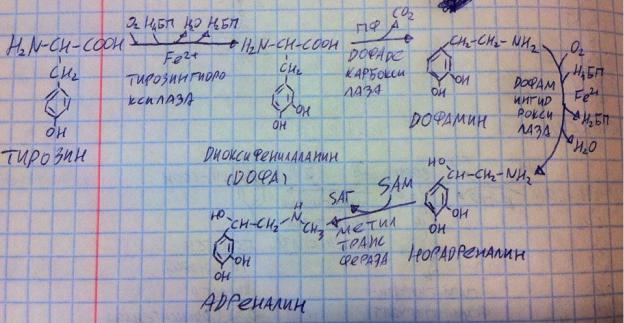 O₂ H₄БП H₂O H₂БП
H₂N-CH-COOH
Fe²⁺
ТИРОЗИНГИДРО
КСИЛАЗА
CH₂
OH
ТИРОЗИН
H₂N-CH-COOH
CH₂
OH
OH
ДИОКСИФЕНИЛАЛАНИН
(ДОФА)
ПФ CO₂
ДОФАДЕ
КАРБОКСИ
ЛАЗА
CH₂-CH₂-NH₂
OH
OH
ДОФАМИН
O₂
H₄БП
Fe²⁺
H₂БП
H₂O
ДОФАМ
ИНГИД
РОКСИ
ЛАЗА
HO
CH-CH₂-NH₂
OH
OH
НОРАДРЕНАЛИН
SAM
SАГ
МЕТИЛ
ТРАНС
ФЕРАЗА
HO
CH-CH₂-N-CH₃
H
OH
OH
АДРЕНАЛИН